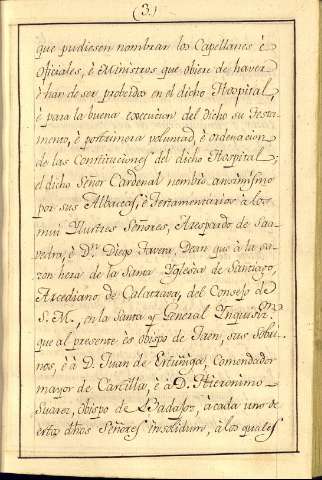 (3.)
que pudiesen nombrar los Capellanes è
oficiales, è Ministros que obiere de haver
è han de ser probeidos en el dicho Hospital,
è para la buena execucion del dicho su Testa-
mento, è postrimera voluntad, è ordenacion
de las Constituciones del dicho Hospital;
el dicho Señor Cardenal nombrò ansimismo
por sus Albaceas, è Testamentarios à los
mui Yllustres Señores, Arespardo de Saa-
vedra, è Dn. Diego Tavera, Dean que à la sa-
zon hera de la Santa Yglesia de Santiago,
Arcediano de Calatrava, del Consejo de
S. M., en la Santa y General Ynquisin.
que al presente es obispo de Jaen, sus sobri-
nos, è à D. Juan de Estuñiga, Comendador
mayor de Castilla, è à D. Hieronimo
Suarez, Obispo de Badajoz, à cada uno de
estos dhos Señores insolidum, à los quales